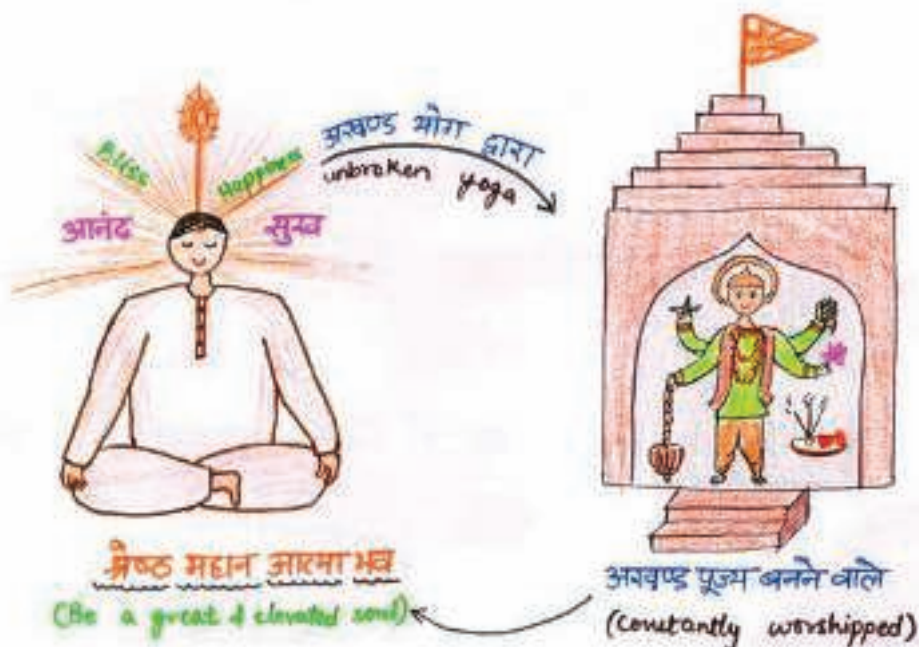 Bliss
Happiness
आनंद
सुख
अखण्ड योग द्वारा
unbroken yoga
श्रेष्ठ महान आत्मा भव
(Be a great & elevated soul)
अखण्ड पूज्य बनने वाले
(constantly worshipped)